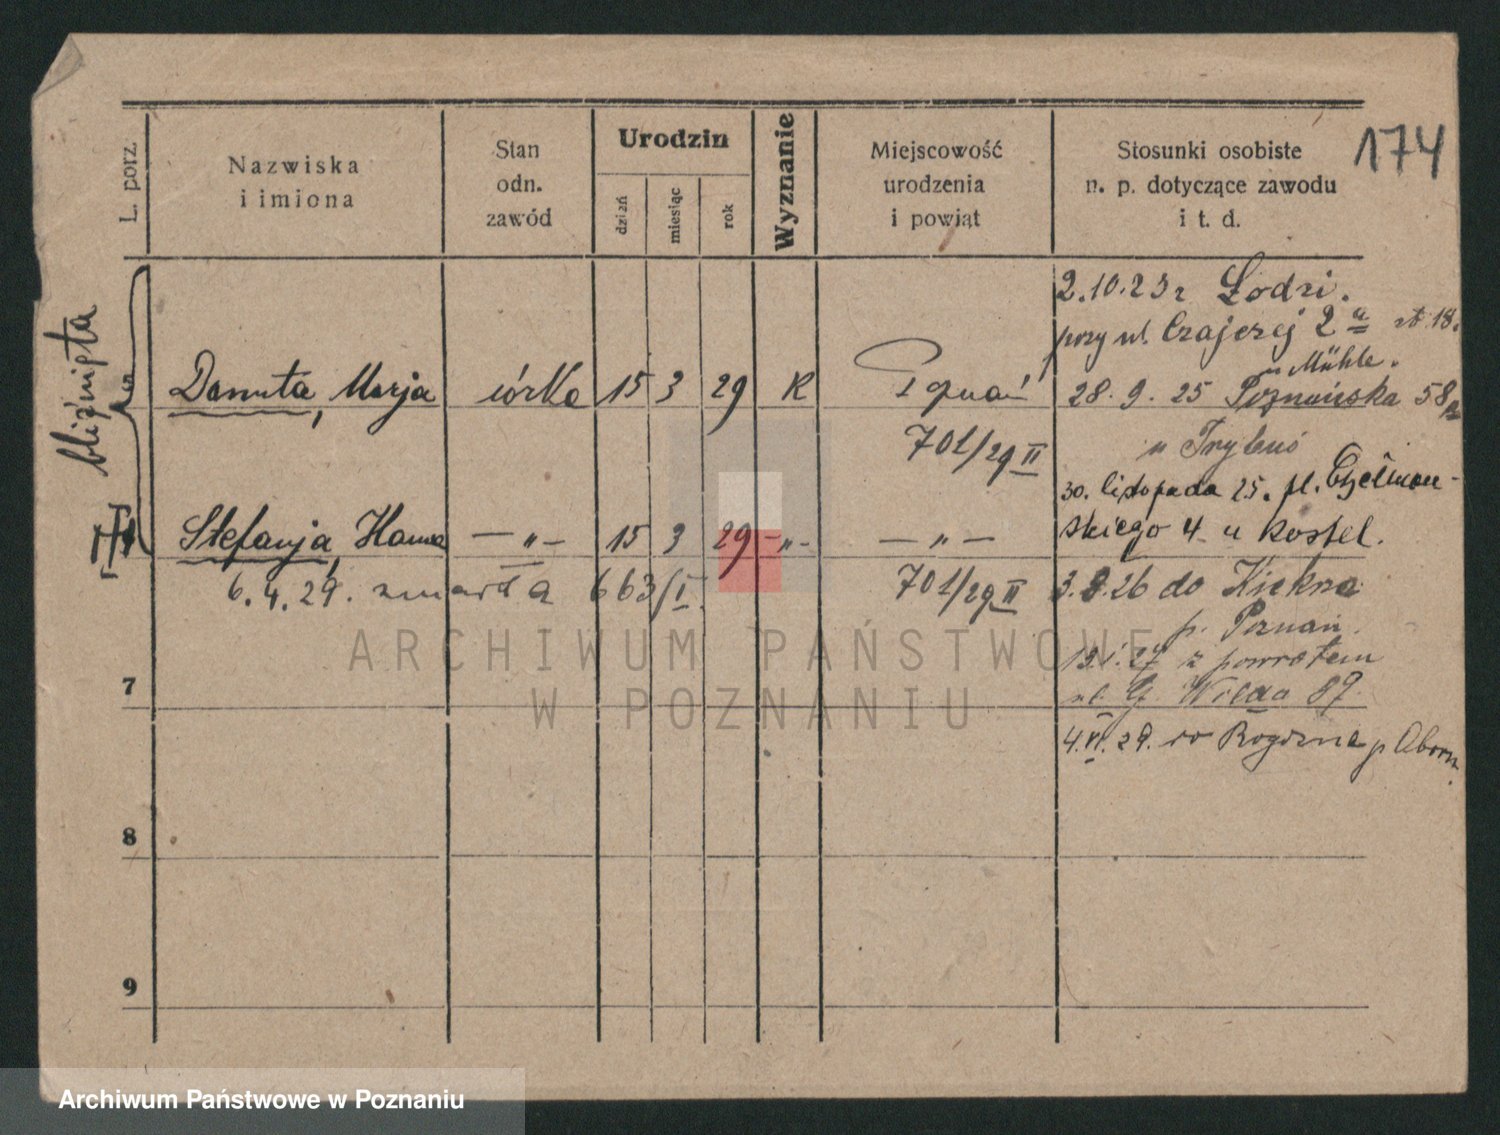 174
L. porz.
Nazwiska
i imiona
Stan
odn.
zawód
Urodzin
dzień
miesiąc
rok
Wyznanie
Miejscowość
urodzenia
i powiąt
Stosunki osobiste
n. p. dotyczące zawodu
i t. d.
bliźnięta
Danuta, Marja córka 15 3 29 R Poznań
701/29 II
Stefanja, Hanna — „ — 15 3 29 – „ – — „ —
6.4.29. zmarła 663/I.
701/29 II
2.10.23 z Łodzi.
przy ul. 2a 18.
u Mühle.
28.9.25 Poznańska 58
u
30. listopada 25. pl.
skiego 4 u Kostel.
3.8.26 do Kiekrza
p. Poznań.
27 z powrotem
ul. G. Wilda 87
4.VI.29. do Rogoźna p
7
8
9
ARCHIWUM PAŃSTWOWE
W POZNANIU
Archiwum Państwowe w Poznaniu